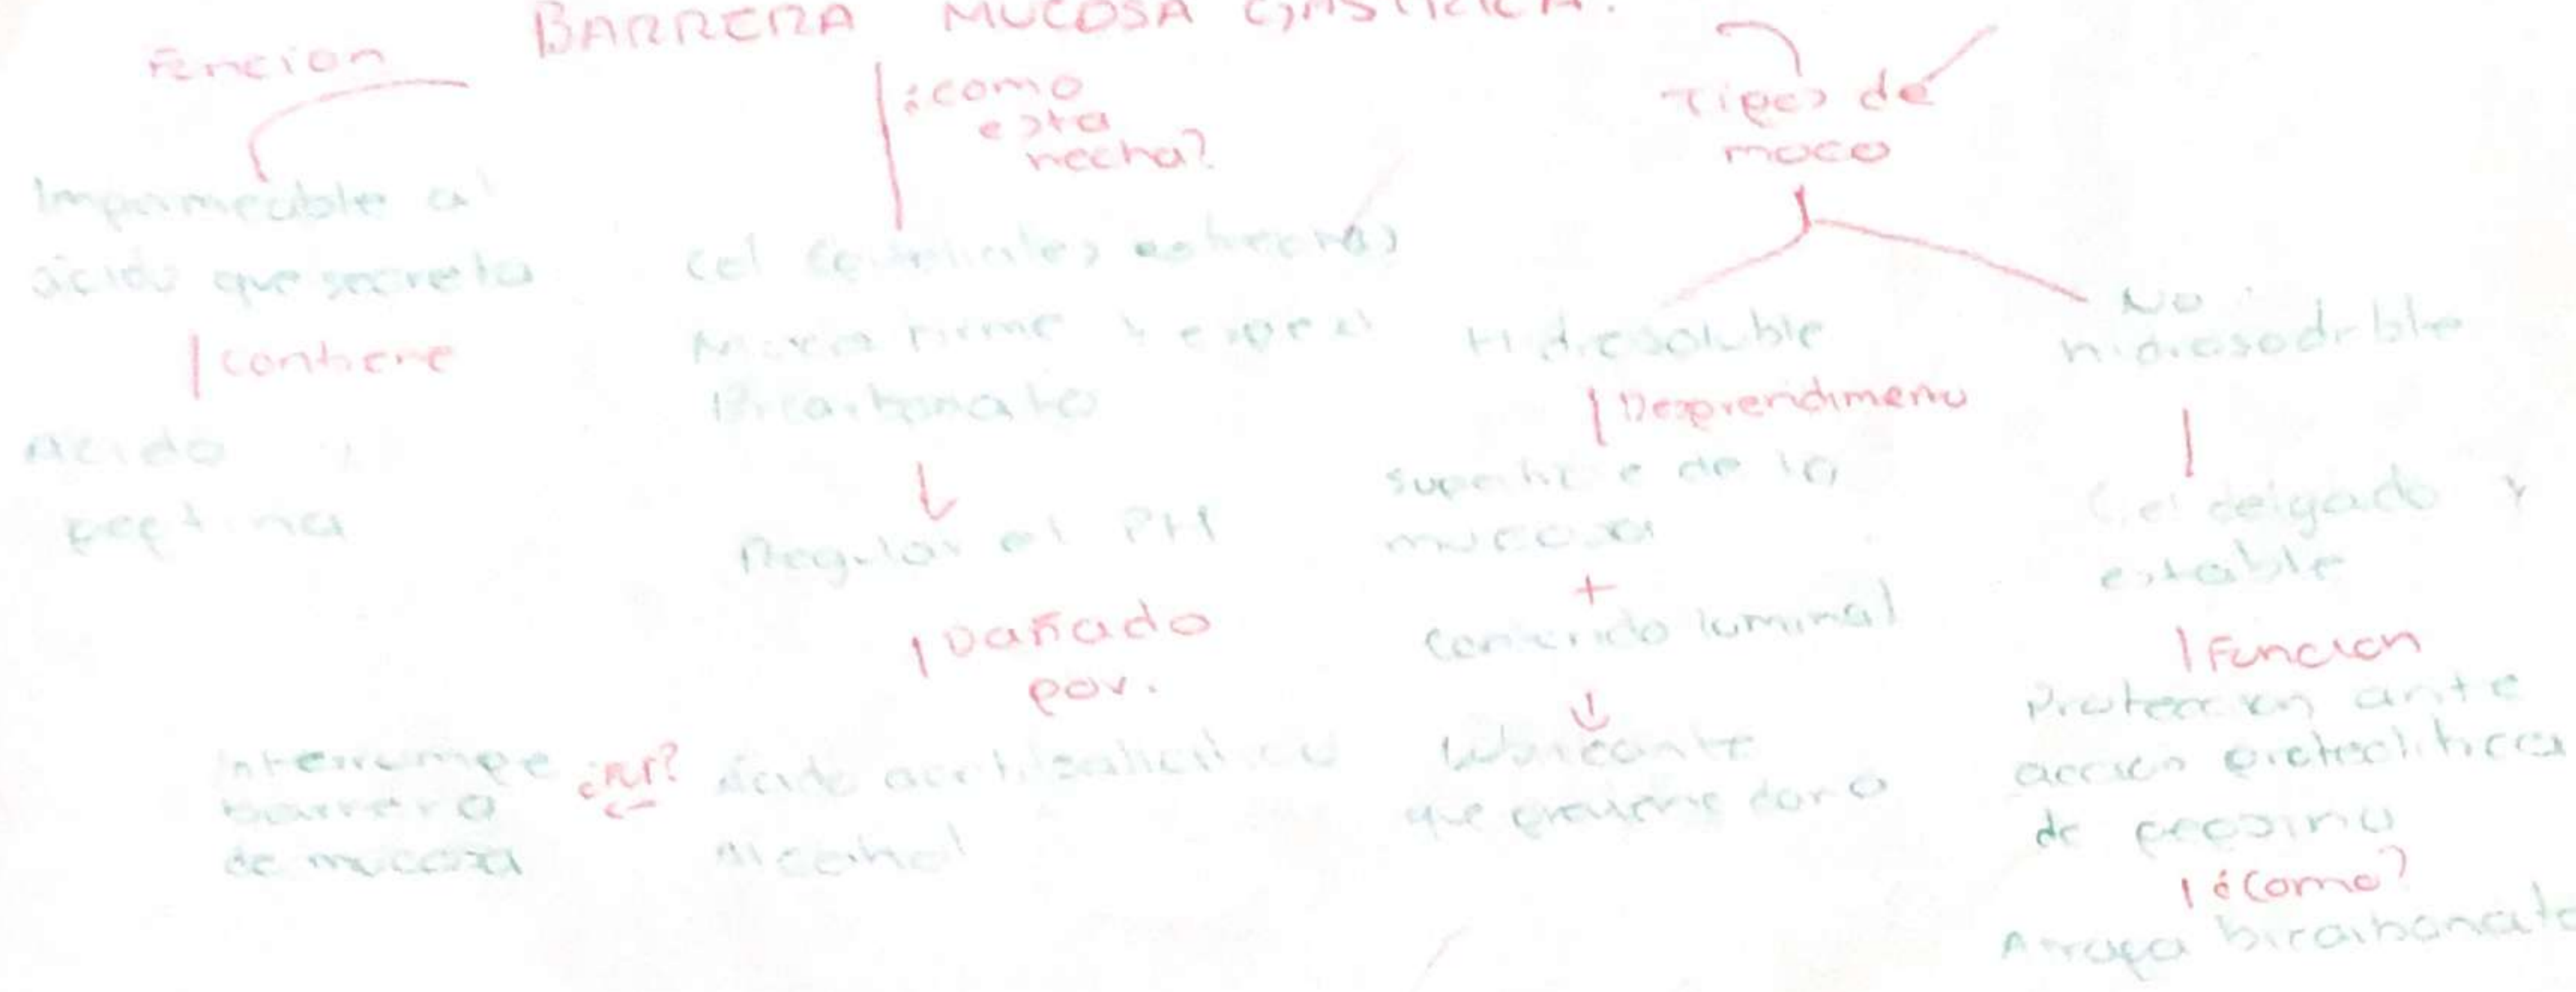 BARRERA MUCOSA GASTRICA.
Funcion
Impermeable al
ácido que secreta
contiene
Acido y
peptina
¿como
esta
hecha?
cel epiteliales estrechas
Moco firme y
Bicarbonato
Regular el PH
Dañado
por.
ácido acetilsalicilico
alcohol
¿Pq?
Interrumpe
barrera
de mucosa
Tipos de
moco
Hidrosoluble
Desprendimeno
superficie de la
mucosa
+
contenido luminal
lubricante
que previene daño
No
hidrosoluble
Gel delgado y
estable
Funcion
Proteccion ante
accion proteolitica
de pepsina
¿Como?
Atrapa bicarbonato